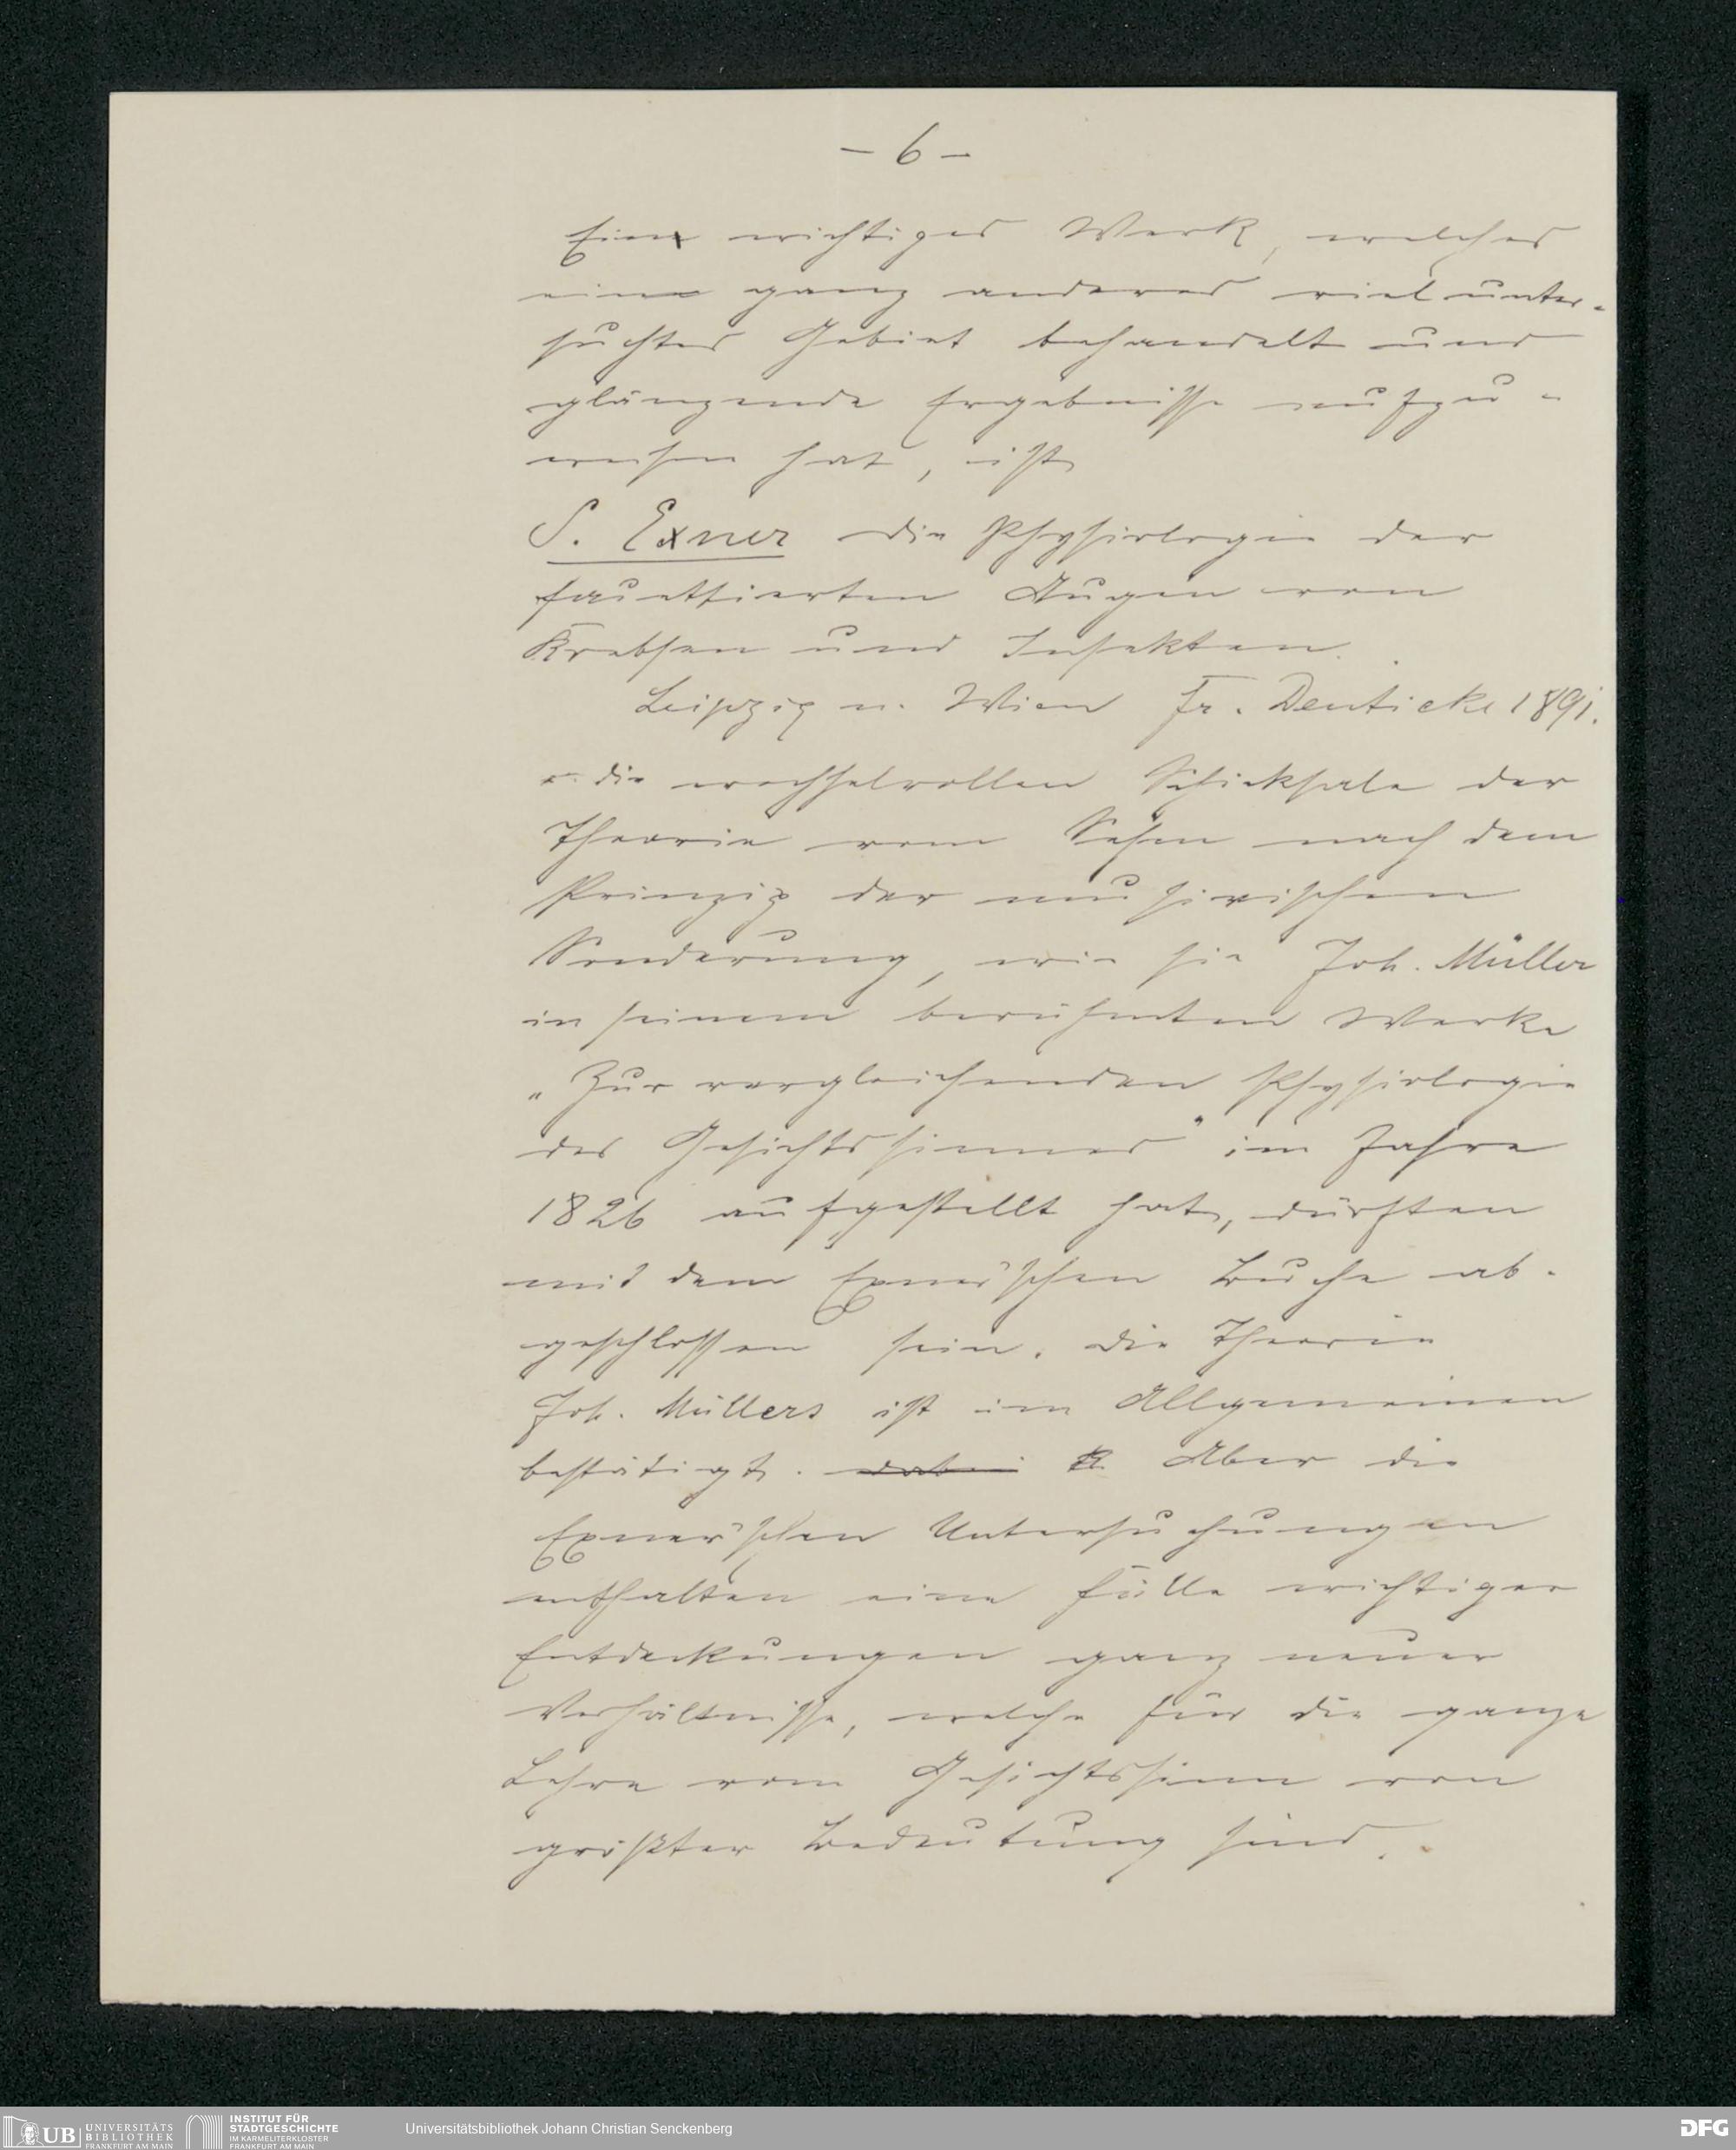 – 6 –
Ein wichtiges Werk, welches
ein ganz anderes viel unter-
suchtes Gebiet behandelt und
glänzende Ergebnisse aufzu-
weisen hat, ist
S. Exner die Physiologie der
facettierten Augen von
Krebsen und Insekten.
Leipzig u. Wien Fr. Deuticke 1891.
die wechselvollen Schicksale der
Theorie vom Sehen nach dem
Prinzip der musivischen
Sonderung, wie sie Joh. Müller
in seinem berühmten Werke
„Zur vergleichenden Physiologie
des Gesichtssinnes" im Jahre
1826 aufgestellt hat, dürften
mit dem Exner'schen Buche ab-
geschlossen sein. die Theorie
Joh. Müllers ist im Allgemeinen
bestätigt. dabei Aber die
Exner'schen Untersuchungen
enthalten eine Fülle wichtiger
Entdeckungen ganz neuer
Verhältnisse, welche für die ganze
Lehre vom Gesichtssinn von
größter Bedeutung sind.
UB UNIVERSITÄTS
BIBLIOTHEK
FRANKFURT AM MAIN
INSTITUT FÜR
STADTGESCHICHTE
IM KARMELITERKLOSTER
FRANKFURT AM MAIN
Universitätsbibliothek Johann Christian Senckenberg
DFG